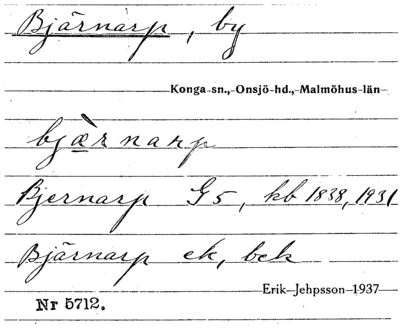 Bjärnarp, by
Konga sn., Onsjö hd., Malmöhus län
bjæ̀rnarp
Bjernarp G5, kb 1838, 1931
Bjärnarp ek, bek
Erik Jehpsson 1937
Nr 5712.